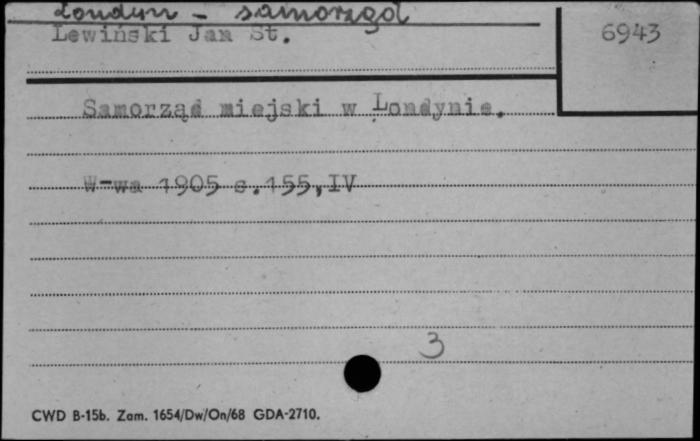 Londyn - samorząd
Lewiński Jan St.
6943
Samorząd miejski w Londynie.
W-wa 1905 s.155,IV
3
CWD B-15b. Zam. 1654/Dw/On/68 GDA-2710.